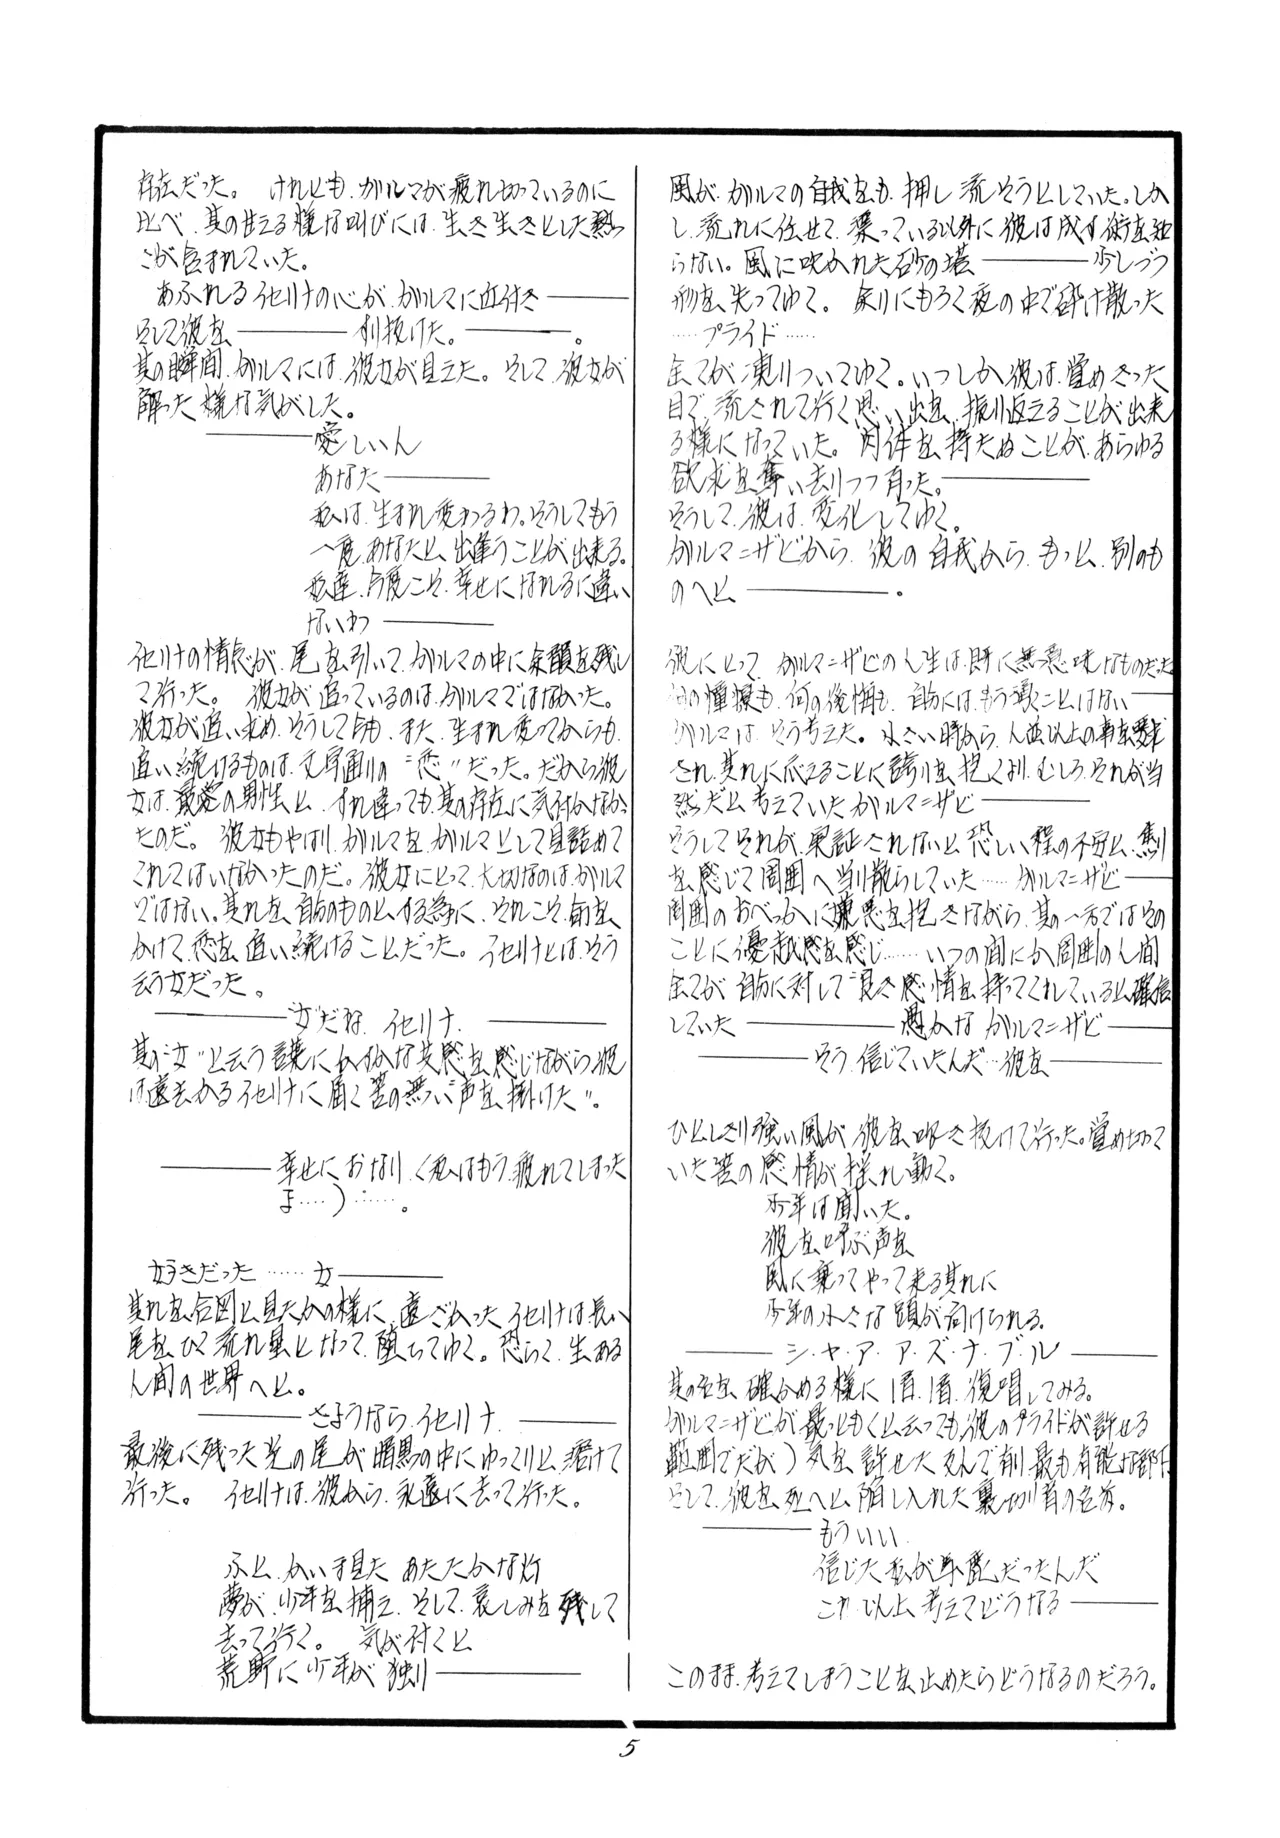 存在だった。　けれども、ガルマが疲れ切っているのに
比べ、其の甘える様な叫びには、生き生きとした熱っ
さが含まれていた。
あふれるイセリナの心が、ガルマに近付き――――
そして彼を――――すり抜けた。――――。
其の瞬間、ガルマには、彼女が見えた。そして、彼女が
解った様な気がした。
――――愛しい人
あなた――――
私は、生まれ変わるわ。そうしてもう
一度、あなたと、出逢うことが出来る。
私達、今度こそ、幸せになれるに違い
ないわ――――
イセリナの情念が、尾を引いて、ガルマの中に余韻を残し
て行った。　彼女が追っているのは、ガルマではなかった。
彼女が追い求め、そうして今も、また、生まれ変ってからも、
追い続けるものは、文字通りの“恋”だった。だから彼
女は、最愛の男性と、すれ違っても、其の存在に気付かなかっ
たのだ。　彼女もやはり、ガルマを、ガルマとして見詰めて
くれてはいなかったのだ。彼女にとって、大切なのは、ガルマ
ではない。其れを、自分のものと、する為に、それこそ、命を、
かけて、恋を、追い続けることだった。イセリナとは、そう
云う女だった。
――――女だね、イセリナ。――――
其の“女”と云う言葉にわずかな共感を、感じながら、彼
は遠去かるイセリナに届く筈の無い“声を、掛けた”。
――――幸せにおなり、（私はもう、疲れてしまった
よ……）……。
好きだった……女――――
其れを、合図と、見たかの様に、遠ざかったイセリナは、長い
尾を、ひく流れ星となって、堕ちてゆく。恐らく、生ある
人間の世界へと。
――――さようなら、イセリナ。――――
最後に残った光の尾が暗黒の中にゆっくりと、溶けて
行った。　イセリナは、彼から、永遠に去って行った。
ふと、かいま見た　あたたかな灯
夢が、少年を、捕え、そして、哀しみを残して
去って行く。　気が付くと
荒野に少年が独り――――
風が、ガルマの自我をも、押し流そうとしていた。しか
し、流れに任せて、乗っている以外に彼は成す術を知
らない。風に吹かれた砂の塔――――少しづつ
形を、失ってゆく。　余りにもろく夜の中で砕け散った
……プライド……
全てが凍りついてゆく。いつしか彼は、覚めきった
目で、流されて行く思い出を、振り返えることが出来
る様になっていた。　肉体を、持たぬことが、あらゆる
欲求を、奪い去りつつ有った。――――
そうして、彼は、変化してゆく。
ガルマ＝ザビから、彼の自我から、もっと、別のも
のへと――――。
彼にとって、ガルマ＝ザビの人生は、既に無意味なものだった
何の憧憬も、何の後悔も、自分には、もう湧くことはない――――
ガルマは、そう考えた。小さい時から、人並以上の事を要求
され、其れに応えることに誇りを、抱くより、むしろ、それが当
然だと、考えていたガルマ＝ザビ――――
そうしてそれが、実証されないと、恐しい程の不安と、焦り
を、感じて周囲へ当り散らしていた……ガルマ＝ザビ――――
周囲のおべっかに嫌悪を、抱きながら、其の一方ではその
ことに優越感を感じ……いつの間にか周囲の人間
全てが自分に対して良き感情を、持ってくれていると、確信
していた――――愚かなガルマ＝ザビ――――
――――そう、信じていたんだ…彼を――――
ひとしきり強い風が彼を、吹き抜けて行った。覚め切って
いた筈の感情が揺れ動く。
少年は聞いた。
彼を、呼ぶ声を
風に乗ってやって来る其れに
少年の小さな頭が向けられる。
――――シ・ャ・ア・ア・ズ・ナ・ブ・ル――――
其の名を、確かめる様に１音、１音、復唱してみる。
ガルマ＝ザビが最っとも（と云っても、彼のプライドが許せる
範囲でだが）気を、許せた友人で有り、最も有能な部下、
そして、彼を、死へと、陥し入れた裏切り者の名前。
――――もういい
信じた私が馬鹿だったんだ
これ以上、考えてどうなる――――
このまま、考えてしまうことを、止めたらどうなるのだろう。
5